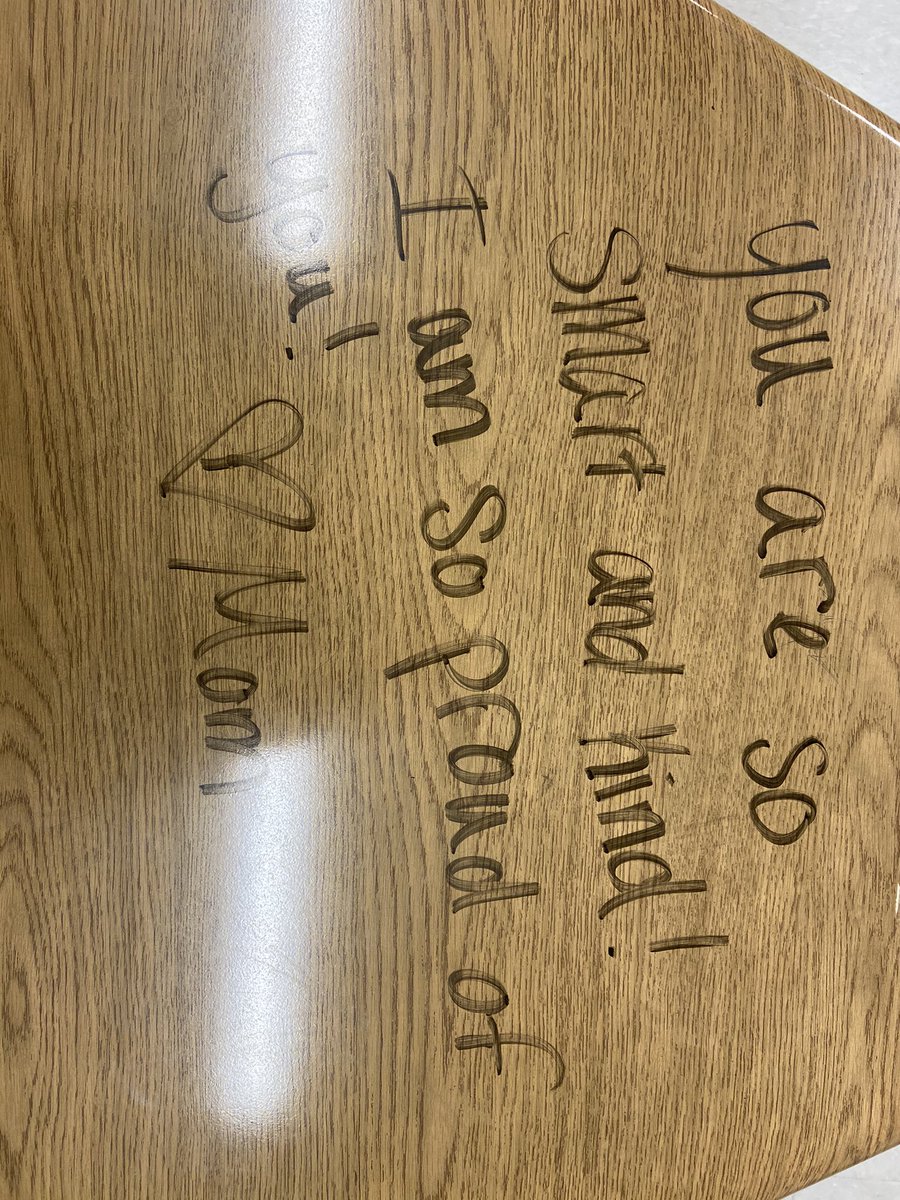 you are so
smart and kind!
I am so proud of
you! ♡ Mom